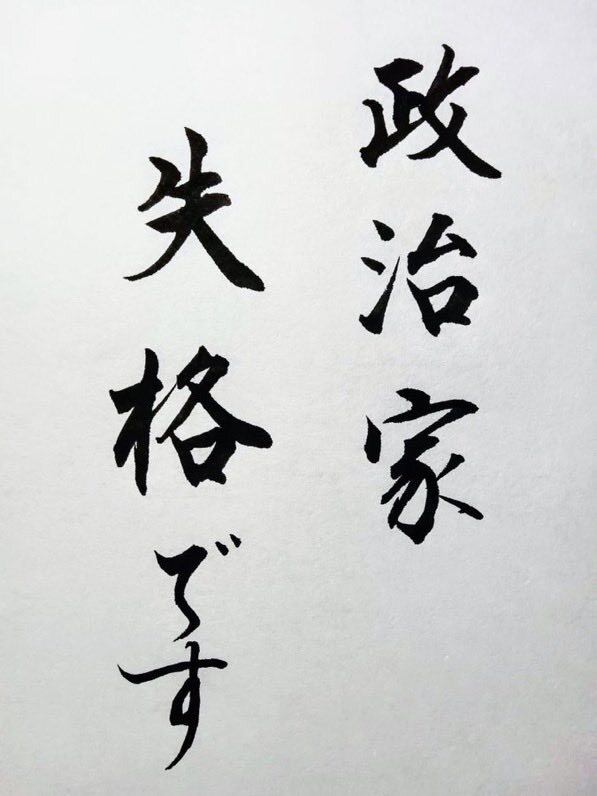 政治家
失格です